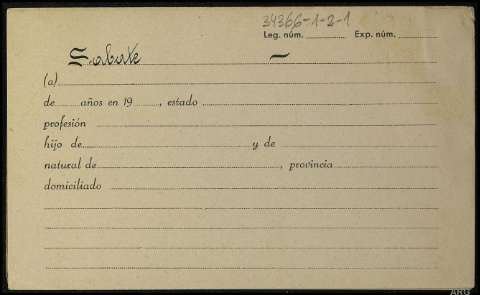 34366-1-2-1
Leg. núm. Exp. núm.
Sabate —
(a)
de años en 19 , estado
profesión
hijo de y de
natural de , provincia
domiciliado